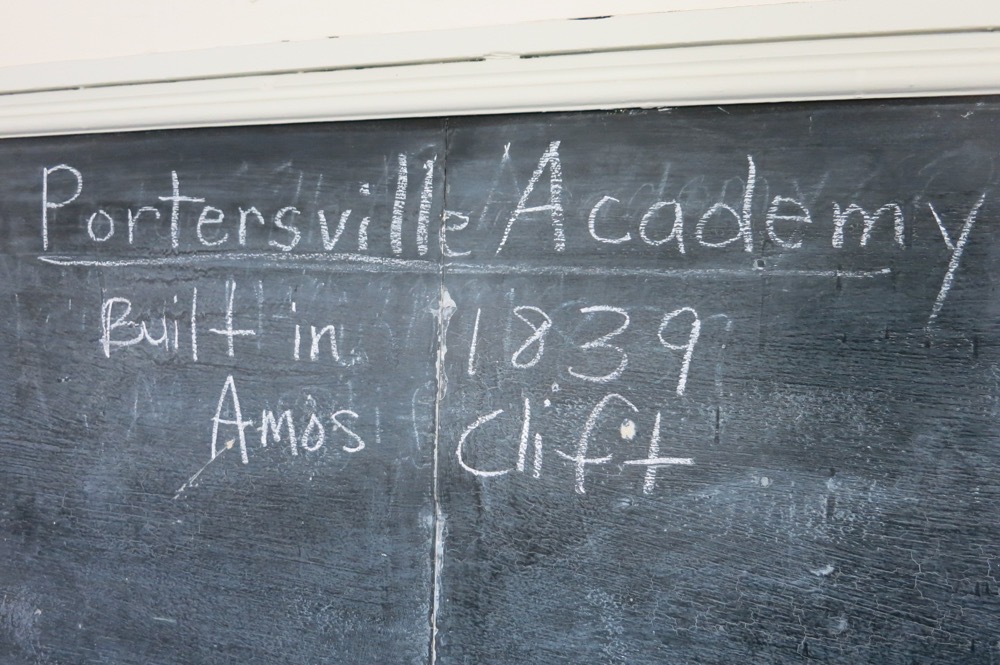 Portersville Academy
Built in 1839
Amos Clift